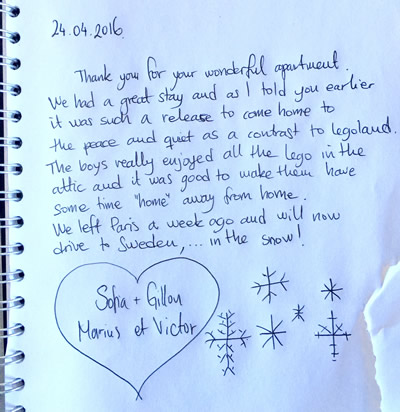 24.04.2016.
Thank you for your wonderful apartment.
We had a great stay and as I told you earlier
it was such a release to come home to
the peace and quiet as a contrast to legoland.
The boys really enjoyed all the lego in the
attic and it was good to make them have
some time "home" away from home.
We left Paris a week ago and will now
drive to Sweden, ... in the snow!
Sofia + Gillou
Marius et Victor